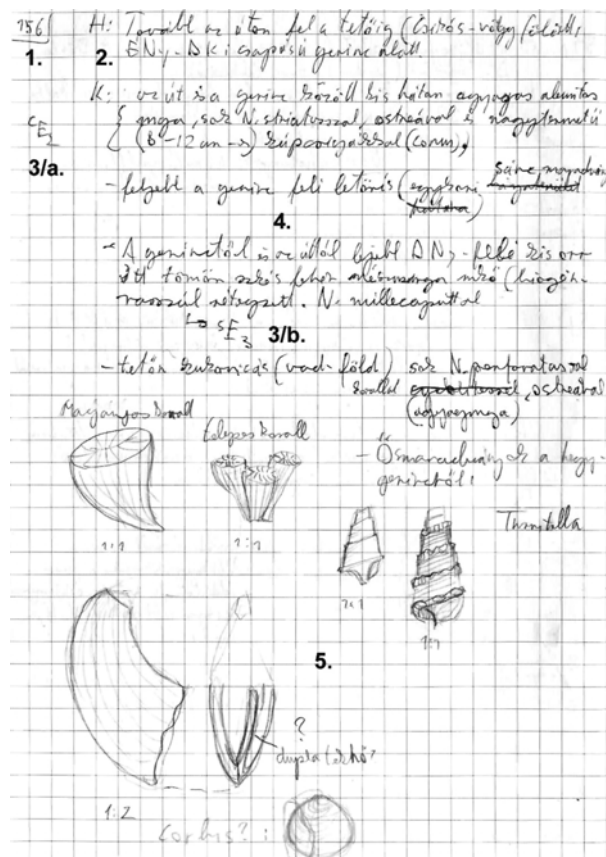 156 H: Tovább az úton fel a tetőig (Csirós-völgy fölötti
1. 2. ÉNy-DK-i csapású gerinc alatt
K: az út és a gerinc között kis hátan agyagos aleuritos
cE2 márga, sok N. striatussal, ostreával és nagytermetű
(8-12 cm-s) kúpcsigákkal (conus),
3/a.
- feljebb a gerinc felé letörés (egykori
4.
- A gerinctől és az úttól lejjebb DNy-felé kis orr
itt tömön szürkésfehér mészkő
N. millecaputtal
sE3 3/b.
- tetőn kukoricás (vad-föld) sok N. perforatussal
korallal, ostreával
(agyagmárga)
Magányos korall
telepes korall
- Ősmaradványok a hegygerinctől:
Turritella
1:1
1:1
2:1
1:1
5.
?
dupla teknő?
1:2
Corbis? :